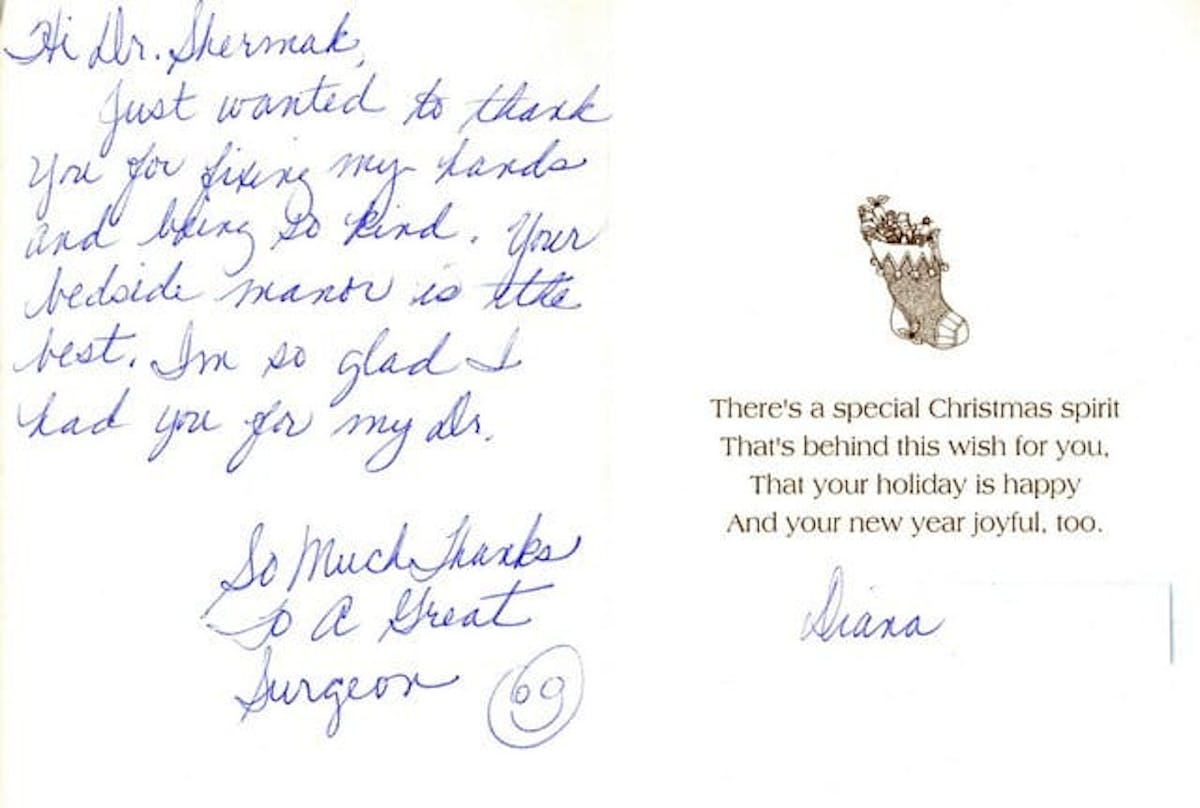 Hi Dr. Shermak,
Just wanted to thank
you for fixing my hands
and being so kind. Your
bedside manor is the
best. I'm so glad I
had you for my Dr.
So Much Thanks
To A Great
Surgeon
There's a special Christmas spirit
That's behind this wish for you,
That your holiday is happy
And your new year joyful, too.
Diana